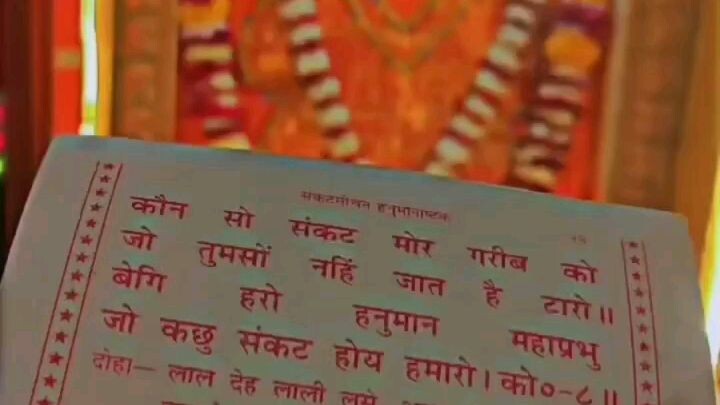 संकटमोचन हनुमानाष्टक
कौन सो संकट मोर गरीब को
जो तुमसों नहिं जात है टारो॥
बेगि हरो हनुमान महाप्रभु
जो कछु संकट होय हमारो। को०-८॥
दोहा— लाल देह लाली लसे